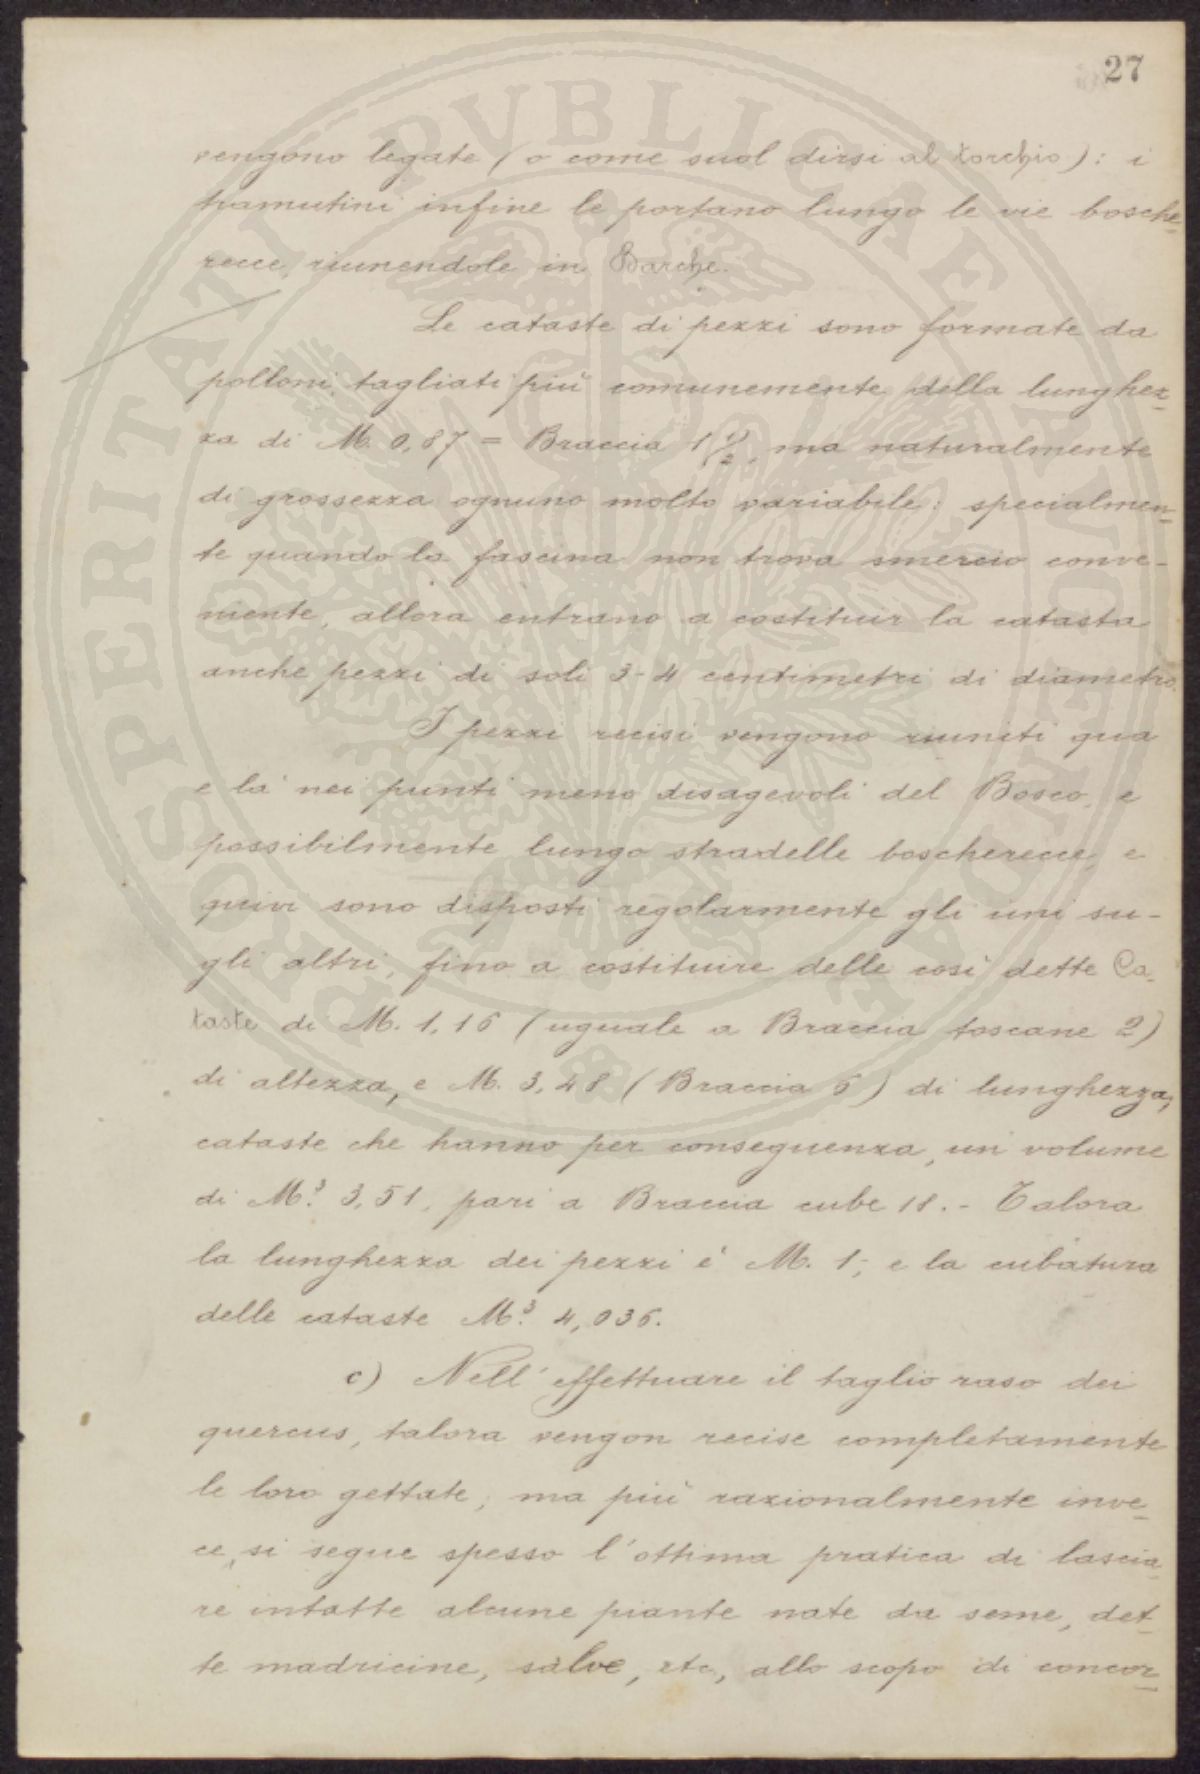 27
vengono legate (o come suol dirsi al torchio): i
tramutini infine le portano lungo le vie bosche-
recce, riunendole in Barche.
Le cataste di pezzi sono formate da
polloni, tagliati più comunemente della lunghez-
za di M. 0,87 = Braccia 1 1/2, ma naturalmente
di grossezza ognuno molto variabile: specialmen-
te quando la fascina non trova smercio conve-
niente, allora entrano a costituir la catasta
anche pezzi di soli 3-4 centimetri di diametro.
I pezzi recisi vengono riuniti qua
e là nei punti meno disagevoli del Bosco, e
possibilmente lungo stradelle boscherecce, e
quivi sono disposti regolarmente gli uni su-
gli altri, fino a costituire delle così dette Ca-
taste di M. 1,16 (uguale a Braccia toscane 2)
di altezza, e M. 3,48 (Braccia 6) di lunghezza;
cataste che hanno per conseguenza, un volume
di M.³ 3,51, pari a Braccia cube 18. - Talora
la lunghezza dei pezzi è M. 1; e la cubatura
delle cataste M.³ 4,036.
c) Nell'effettuare il taglio raso dei
quercus, talora vengon recise completamente
le loro gettate; ma più razionalmente inve-
ce, si segue spesso l'ottima pratica di lascia-
re intatte alcune piante nate da seme, det-
te madricine, salve, etc, allo scopo di concor-
PROSPERITATI PVBLICAE AVGENDAE